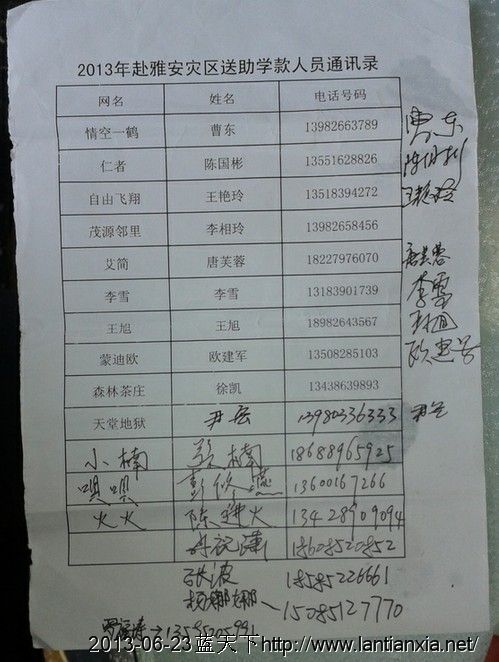 2013年赴雅安灾区送助学款人员通讯录
网名 姓名 电话号码
情空一鹤 曹东 13982663789 曹东
仁者 陈国彬 13551628826
自由飞翔 王艳玲 13518394272 王艳玲
茂源邻里 李相玲 13982658456
艾简 唐芙蓉 18227976070 唐芙蓉
李雪 李雪 13183901739 李雪
王旭 王旭 18982643567 王旭
蒙迪欧 欧建军 13508285103
森林茶庄 徐凯 13438639893
天堂地狱 尹宏 13980336333 尹宏
小楠 楠 18688965925
呗呗 彭 燕 13600167266
火火 陈建火 13428909094
18608520852
张波 18585226661
杨娜娜 15085127770
2013-06-23蓝天下http://www.lantianxia.net/